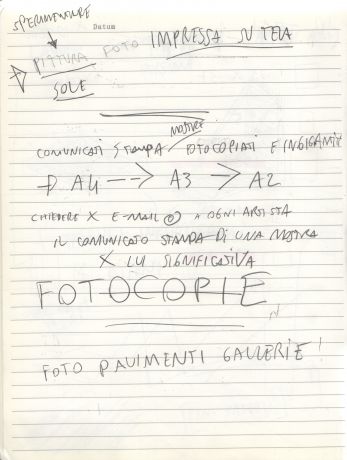 SPERIMENTARE
Datum
PITTURA FOTO IMPRESSA SU TELA
SOLE
MOSTRE
COMUNICATI STAMPA FOTOCOPIATI E INGIGANTITI
A4 --> A3 -> A2
CHIEDERE X E-MAIL @ A OGNI ARTISTA
IL COMUNICATO STAMPA DI UNA MOSTRA
X LUI SIGNIFICATIVA
FOTOCOPIE
FOTO PAVIMENTI GALLERIE!